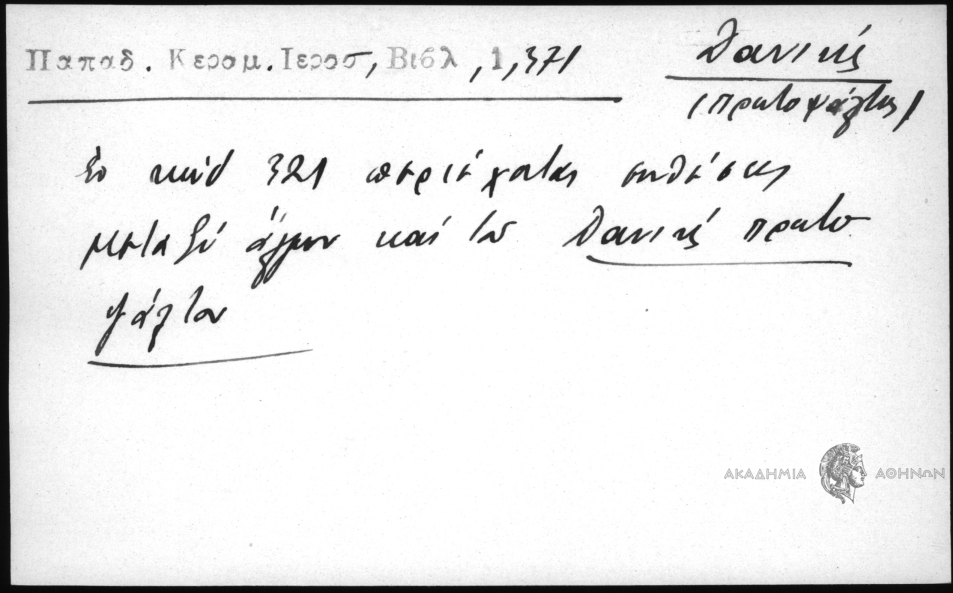 Παπαδ. Κεραμ. Ιεροσ, Βιβλ, 1, 371
Δανιήλ
(πρωτοψάλτης)
Ἐν κώδ 321 περιέχονται συνθέσεις
μεταξύ ἄλλων καί τοῦ Δανιήλ πρωτο
ψάλτου
ΑΚΑΔΗΜΙΑ ΑΘΗΝΩΝ